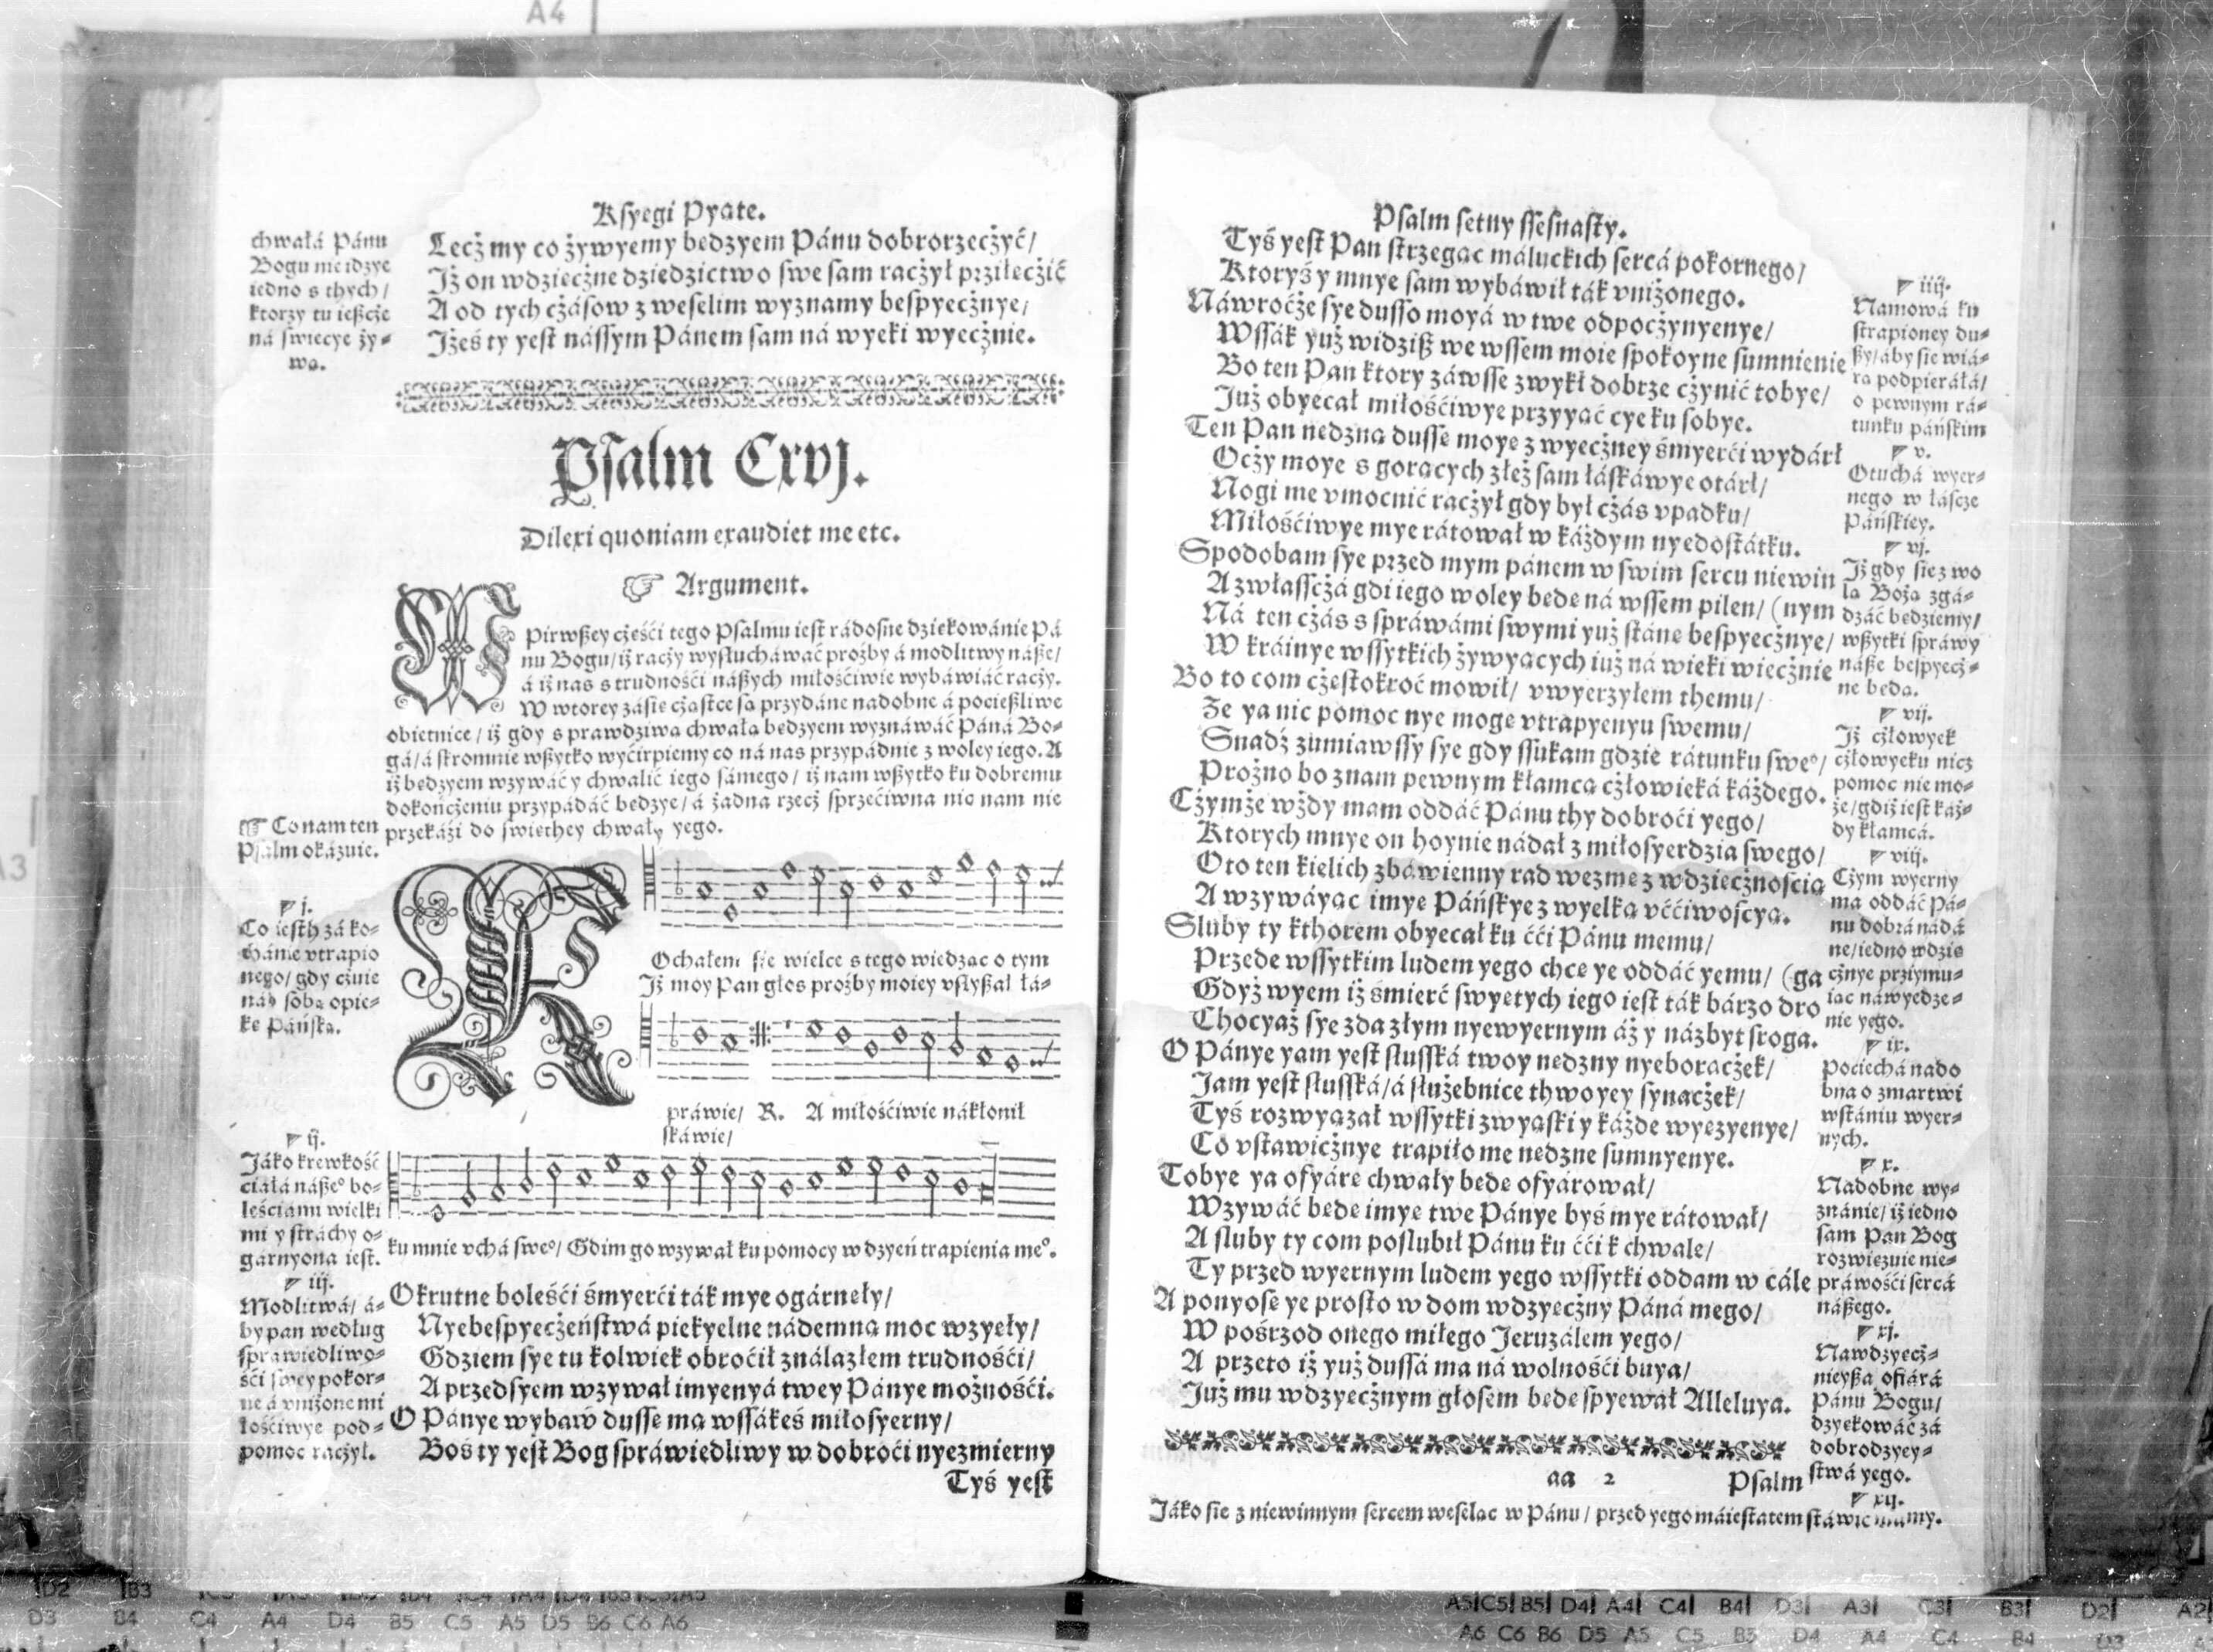 Ksyegi Pyate.
chwałá Pánu
Bogu nie idzye
iedno s thych /
ktorzy tu ießcże
ná swiecye ży⸗
wa.
Lecż my co żywyemy bedzyem Pánu dobrorzecżyć /
Jż on wdziecżne dziedzictwo swe sam racżył przilecżić
A od tych cżásow z weselim wyznamy bespyecżnye /
Jżeś ty yest nássym Pánem sam ná wyeki wyecżnie.
Psalm Cxvj.
Dilexi quoniam exaudiet me etc.
☞ Argument.
W pirwßey cżeśći tego Psalmu iest rádosne dziekowánie Pá
nu Bogu / iż racży wysłucháwáć proźby á modlitwy náße /
á iż nas s trudnośći náßych miłośćiwie wybáwiáć racży.
W wtorey zásie cżastce sa przydáne nadobne á pocießliwe
obietnice / iż gdy s prawdziwa chwała bedzyem wyznáwáć Páná Bo⸗
gá / á skromnie wßytko wyćirpiemy co ná nas przypádnie z woley iego. A
iż bedzyem wzywáć y chwalić iego sámego / iż nam wßytko ku dobremu
dokończeniu przypádáć bedzye / á żadna rzecż sprzećiwna nic nam nie
przekáźi do swiethey chwały yego.
☞ Co nam ten
Psalm okázuie.
j.
Co iesth zá ko⸗
chánie vtrapio
nego / gdy cżuie
nád soba opie⸗
ke Páńska.
KOchałem sie wielce s tego wiedzac o tym
Jż moy Pan głos proźby moiey vslyßał łá⸗
práwie / R. A miłośćiwie nákłonił
skáwie /
ku mnie vchá sweº / Gdim go wzywał ku pomocy w dzyeń trapienia meº.
ij.
Jáko krewkość
ciáłá náßeº bo⸗
leściámi wielki
mi y stráchy o⸗
gárnyona iest.
iij.
Modlitwá / á⸗
by pan według
sprawiedliwo⸗
śći swey pokor⸗
ne á vniżone mi
łościwye pod⸗
pomoc racżył.
Okrutne boleśći śmyerći ták mye ogárnely /
Nyebespyecżeństwá piekyelne nádemna moc wzyeły /
Gdziem sye tu kolwiek obroćił ználazłem trudnośći /
A przedsyem wzywał imyenyá twey Pánye możnośći.
O Pánye wybaw dusse ma wssákeś miłosyerny /
Boś ty yest Bog spráwiedliwy w dobroći nyezmierny
Tyś yest
Psalm setny ssesnasty.
Tyś yest Pan strzegac máluckich sercá pokornego /
Ktoryś y mnye sam wybáwił ták vniżonego.
Náwroćże sye dusso moyá w twe odpocżynyenye /
Wssák yuż widziß we wssem moie spokoyne sumnienie
Bo ten Pan ktory záwsse zwykł dobrze cżynić tobye /
Już obyecał miłośćiwye przyyać cye ku sobye.
Ten Pan nedzna dusse moye z wyecżney śmyerći wydárł
Ocży moye s goracych złez sam łáskáwye otárl /
Nogi me vmocnić racżył gdy był cżás vpadku /
Miłośćiwye mye rátował w káżdym nyedostátku.
Spodobam sye przed mym pánem w swim sercu niewin
A zwłasscżá gdi iego woley bede ná wssem pilen / (nym
Ná ten cżás s spráwámi swymi yuż stáne bespyecżnye /
W kráinye wssytkich żywyacych iuż ná wieki wiecżnie
Bo to com cżestokroć mowił / vwyerzyłem themu /
Że ya nic pomoc nye moge vtrapyenyu swemu /
Snadź zumiawssy sye gdy ssukam gdzie rátunku sweº /
Prożno bo znam pewnym kłamca cżłowieká káżdego.
Cżymże wżdy mam oddáć Pánu thy dobroći yego /
Ktorych mnye on hoynie nádał z miłosyerdzia swego /
Oto ten kielich zbáwienny rad wezme z wdziecżnoscia
A wzywáyac imye Páńskye z wyelka vććiwoscya.
Sluby ty kthorem obyecał ku ćći Pánu memu /
Przede wssytkim ludem yego chce ye oddáć yemu / (ga
Gdyż wyem iż śmierć swyetych iego iest ták bárzo dro
Chocyaż sye zda złym nyewyernym áż y názbyt sroga.
O Pánye yam yest slusská twoy nedzny nyeboracżek /
Jam yest slusská / á służebnice thwoyey synacżek /
Tyś rozwyazał wssytki zwyaski y káżde wyezyenye /
Co vstawicżnye trapiło me nedzne sumnyenye.
Tobye ya ofyáre chwały bede ofyárował /
Wzywáć bede imye twe Pánye byś mye rátował /
A sluby ty com poslubił Pánu ku ćći k chwale /
Ty przed wyernym ludem yego wssytki oddam w cále
A ponyose ye prosto w dom wdzyecżny Páná mego /
W pośrzod onego miłego Jeruzálem yego /
A przeto iż yuż dussá ma ná wolnośći buya /
Już mu wdzyecżnym głosem bede spyewał Alleluya.
aa 2
Psalm
iiij.
Namowá ku
strapioney du⸗
ßy / áby sie wiá⸗
ra podpieráłá /
o pewnym rá⸗
tunku páńskim
v.
Otuchá wyer⸗
nego w łásce
Páńskiey.
vj.
Jż gdy sie z wo
la Boża zgá⸗
dzáć bedziemy /
wßytki spráwy
náße bespyecż⸗
ne beda.
vij.
Jż cżłowyek
cżłowyeku nicz
pomoc nie mo⸗
że / gdiż iest káż⸗
dy kłamcá.
viij.
Cżym wyerny
ma oddáć Pá⸗
nu dobrá nádá
ne / iedno wdzie
cżnye prziymu⸗
iac náwyedze⸗
nie yego.
ix.
Pociechá nado
bna o zmartwi
wstániu wyer⸗
nych.
x.
Nadobne wy⸗
znánie / iż iedno
sam Pan Bog
rozwiezuie nie⸗
práwośći sercá
náßego.
xj.
Nawdzyecż⸗
nieyßa ofiárá
Pánu Bogu /
dzyekowáć zá
dobrodzyey⸗
stwá yego.
xij.
Jáko sie z niewinnym sercem weselac w Pánu / przed yego máiestatem stáwić mamy.